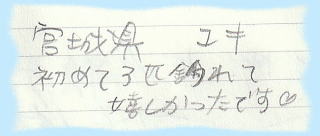 宮城県 ユキ
初めて3匹釣れて
嬉しかったです♡